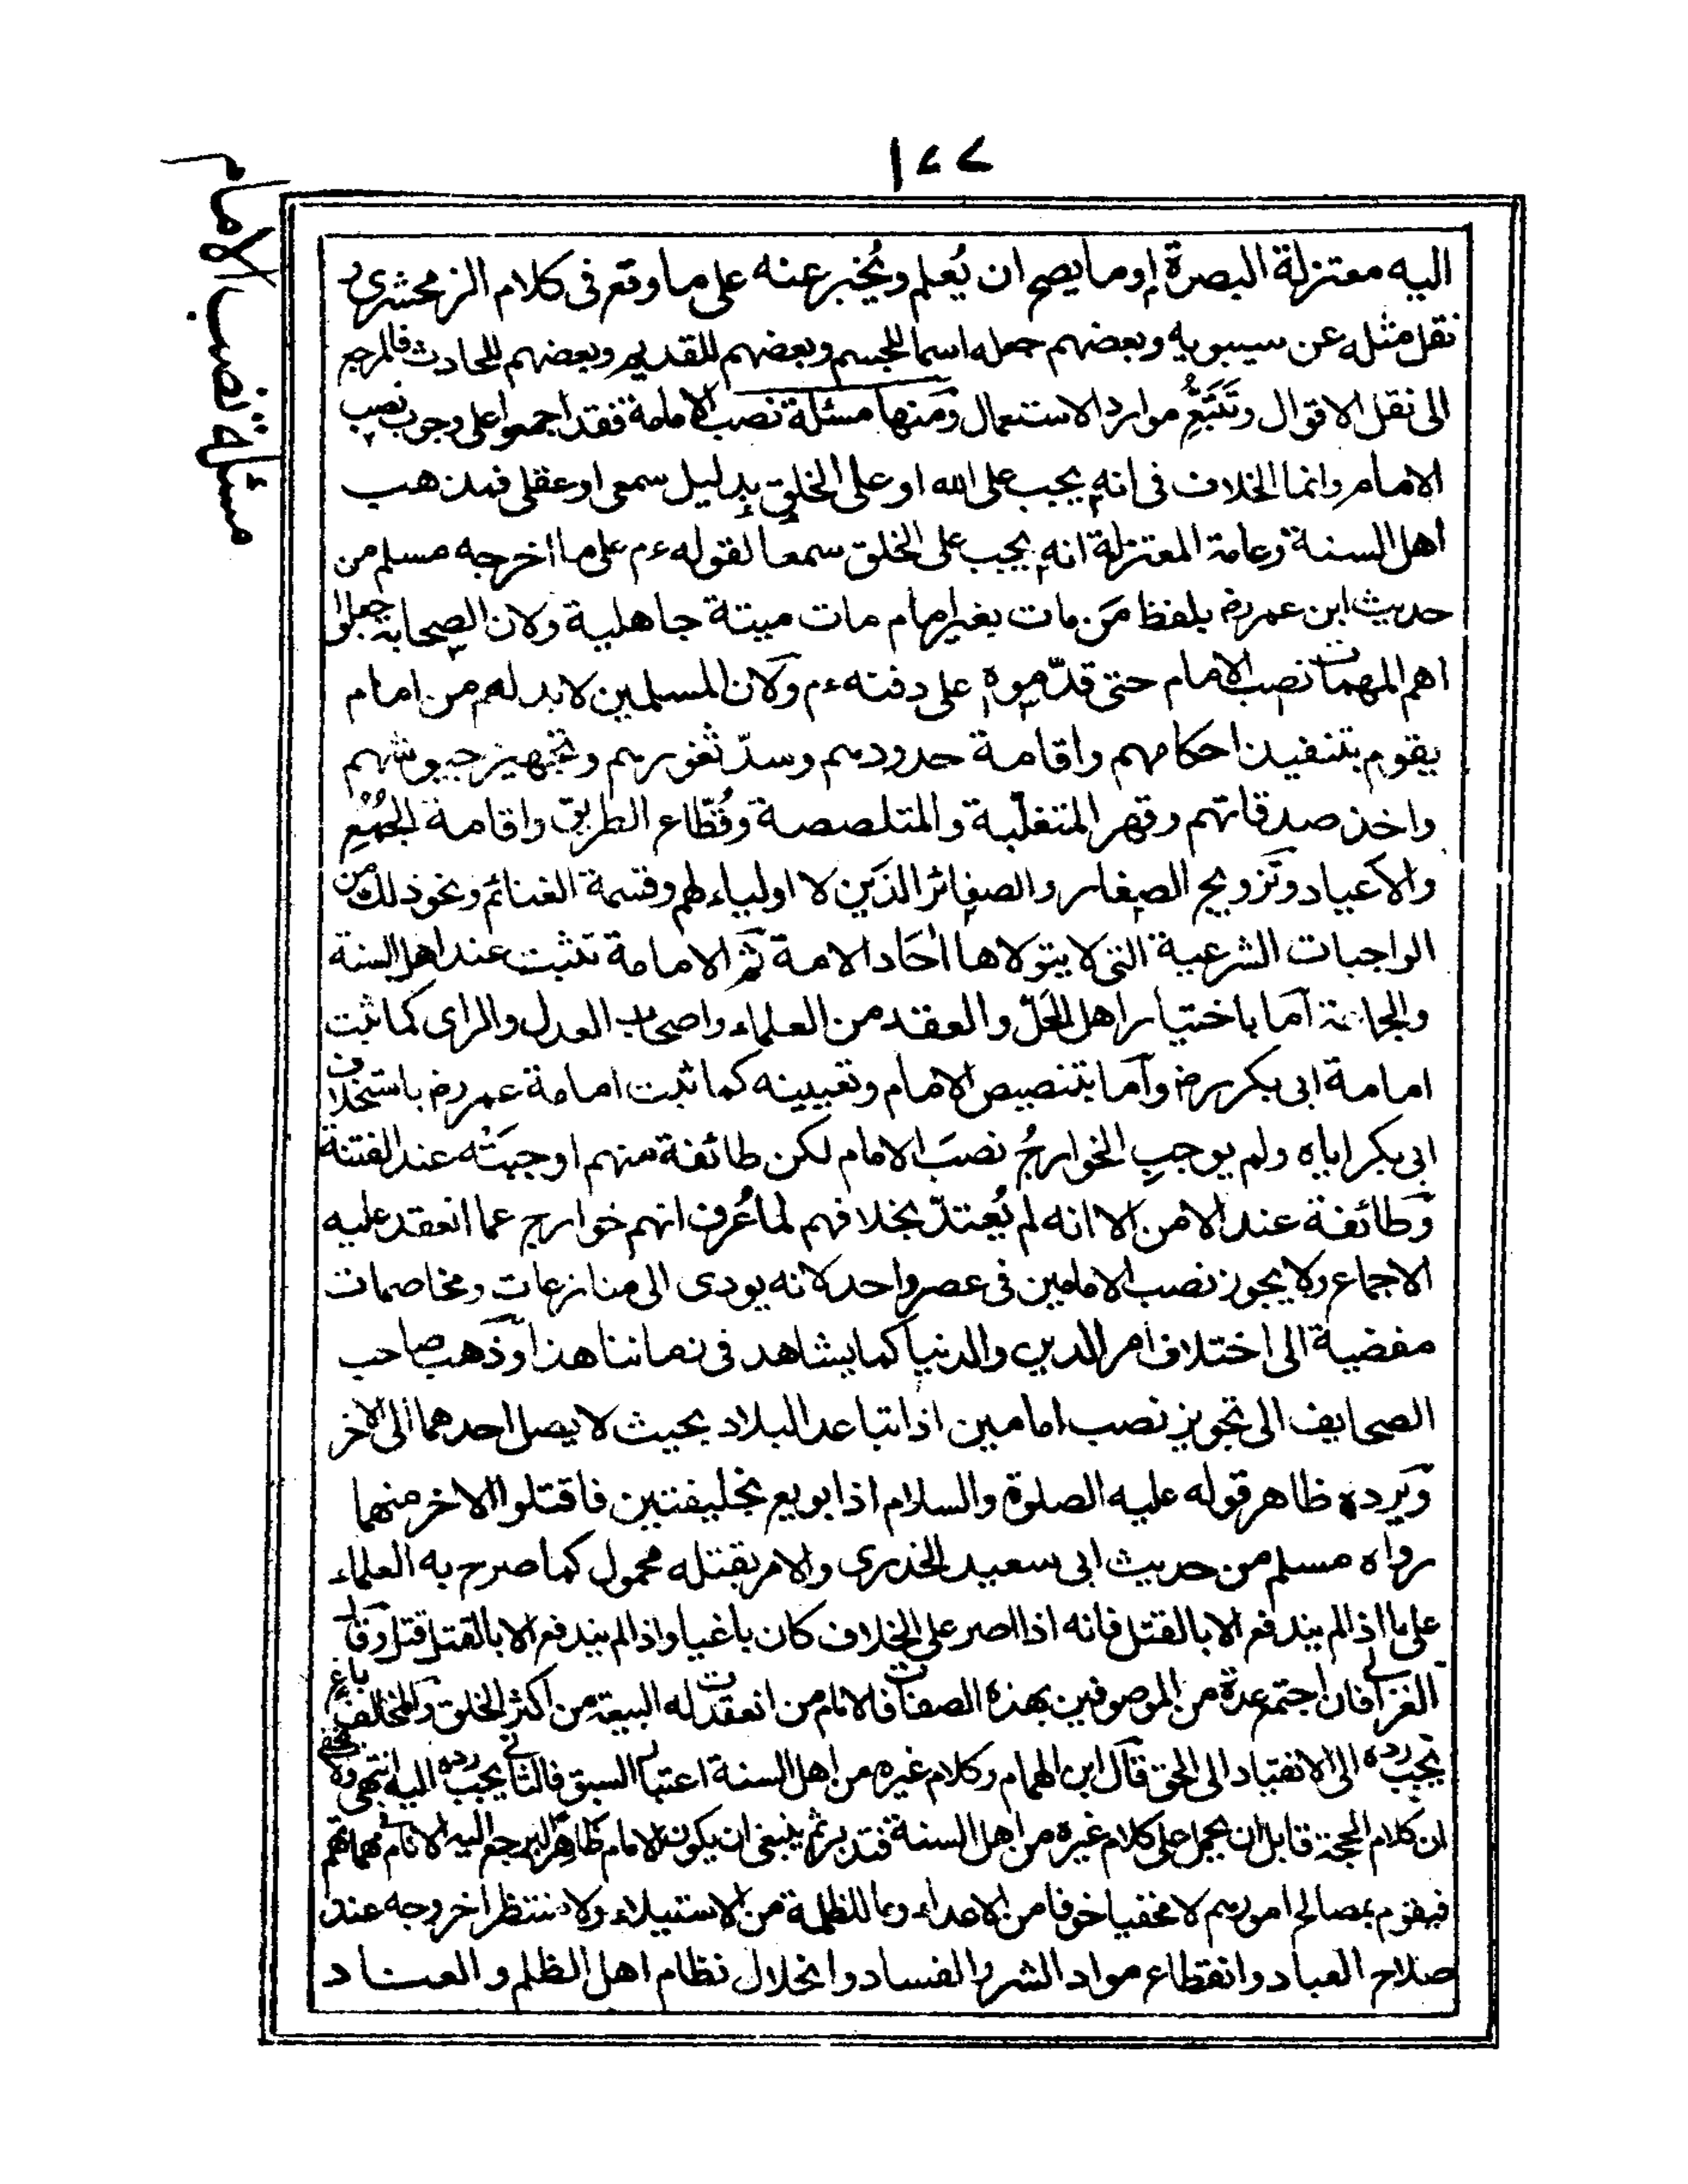 ١٤٧
مسئلة نصب الامام
اليه معتزلة البصرة او ما يصح ان يُعلم ويُخبر عنه على ما وقع فى كلام الزمخشرى
نقل مثله عن سيبويه وبعضهم جعله اسما للجسم وبعضهم للقديم وبعضهم للحادث فالمرجع
الى نقل الاقوال وتَتَبُّعِ موارد الاستعمال ومنها مسئلة نصب الامامة فقد اجمعوا على وجوب نصب
الامام وانما الخلاف فى انه يجب على الله او على الخلق بدليل سمعى او عقلى فمذهب
اهل السنة وعامة المعتزلة انه يجب على الخلق سمعا لقوله ءم على ما اخرجه مسلم من
حديث ابن عمر رض بلفظ مَن مات بغير امام مات ميتة جاهلية ولان الصحابة جعلوا
اهم المهمات نصب الامام حتى قدّموه على دفنه ءم ولان المسلمين لا بد لهم من امام
يقوم بتنفيذ احكامهم واقامة حدودهم وسدّ ثغورهم وتجهيز جيوشهم
واخذ صدقاتهم وقهر المتغلّبة والمتلصصة وقُطّاع الطريق واقامة الجُمَعِ
والاعياد وتزويج الصغار والصغائر الذين لا اولياء لهم وقسمة الغنائم ونحو ذلك من
الواجبات الشرعية التى لا يتولاها اٰحَاد الامة ثم الامامة تثبت عند اهل السنة
والجماعة اما باختيار اهل الحَلّ والعقد من العلماء واصحاب العدل والراى كما ثبت
امامة ابى بكر رض واما بتنصيص الامام وتعيينه كما ثبت امامة عمر رض باستخلاف
ابى بكر اياه ولم يوجبِ الخوارجُ نصبَ الامام لكن طائفة منهم اوجبَتْه عند الفتنة
وطائفة عند الامن الا انه لم يُعتدّ بخلافهم لما عُرف انهم خوارج عما انعقد عليه
الاجماع ولا يجوز نصب الامامين فى عصر واحد لانه يودى الى منازعات ومخاصمات
مفضية الى اختلاف امر الدين والدنيا كما يشاهد فى زماننا هذا وذهب صاحب
الصحايف الى تجويز نصب امامين اذا تباعد البلاد بحيث لا يصل احدهما الى الاخر
ويرده ظاهر قوله عليه الصلوة والسلام اذا بويع بخليفتين فاقتلوا الاخر منهما
رواه مسلم من حديث ابى سعيد الخدرى والامر بقتله محمول كما صرح به العلماء
على ما اذا لم يندفع الا بالقتل فانه اذا اصر على الخلاف كان باغيا واذا لم يندفع الا بالقتل قتل وقال
الغزالى فان اجتمع عدة من الموصوفين بهذه الصفات فالامام من انعقدت له البيعة من اكثر الخلق والمخالف باغ
يجب رده الى الانقياد الى الحق قال ابن الهمام وكلام غيره من اهل السنة اعتبار السبق فالثانى يجب رده اليه انتهى ولا يخفى
ان كلام الحجة قابل ان يحمل على كلام غيره من اهل السنة فتدبر ثم ينبغى ان يكون الامام ظاهرا ليرجع اليه الانام فى مهماتهم
فيقوم بمصالح امورهم لا مخفيا خوفا من الاعداء وما للظلمة من الاستيلاء ولا منتظرا خروجه عند
صلاح العباد وانقطاع مواد الشر والفساد وانحلال نظام اهل الظلم والعناد